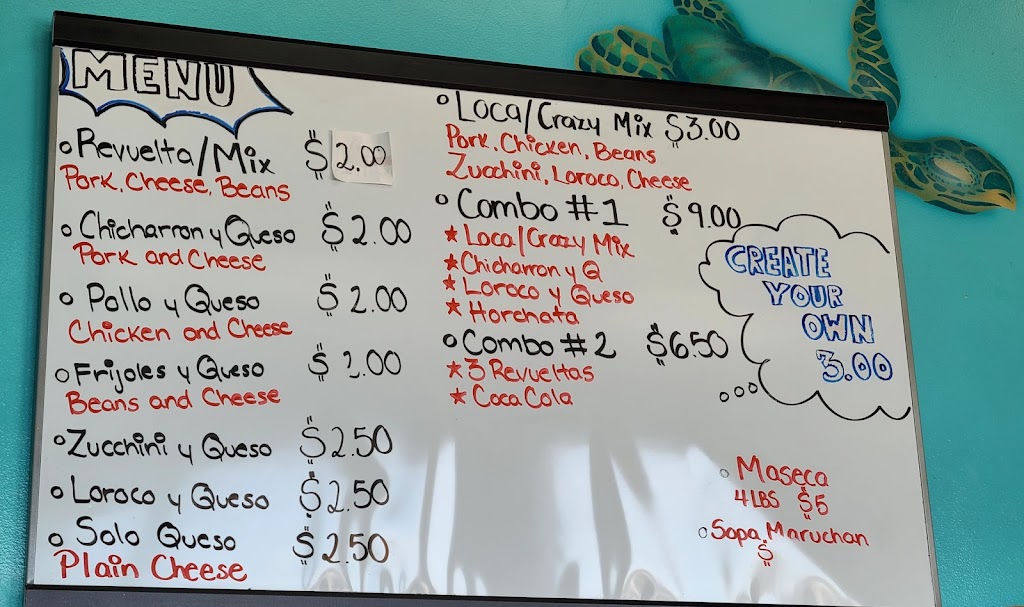 MENU
○ Revuelta/Mix $2.00
Pork, Cheese, Beans
○ Chicharron y Queso $2.00
Pork and Cheese
○ Pollo y Queso $2.00
Chicken and Cheese
○ Frijoles y Queso $2.00
Beans and Cheese
○ Zucchini y Queso $2.50
○ Loroco y Queso $2.50
○ Solo Queso $2.50
Plain Cheese
○ Loca/Crazy Mix $3.00
Pork, Chicken, Beans
Zucchini, Loroco, Cheese
○ Combo #1 $9.00
★ Loca/Crazy Mix
★ Chicharron y Q
★ Loroco y Queso
★ Horchata
○ Combo #2 $6.50
★ 3 Revueltas
★ Coca Cola
CREATE
YOUR
OWN
3.00
○ Maseca
4 LBS $5
○ Sopa Maruchan
$